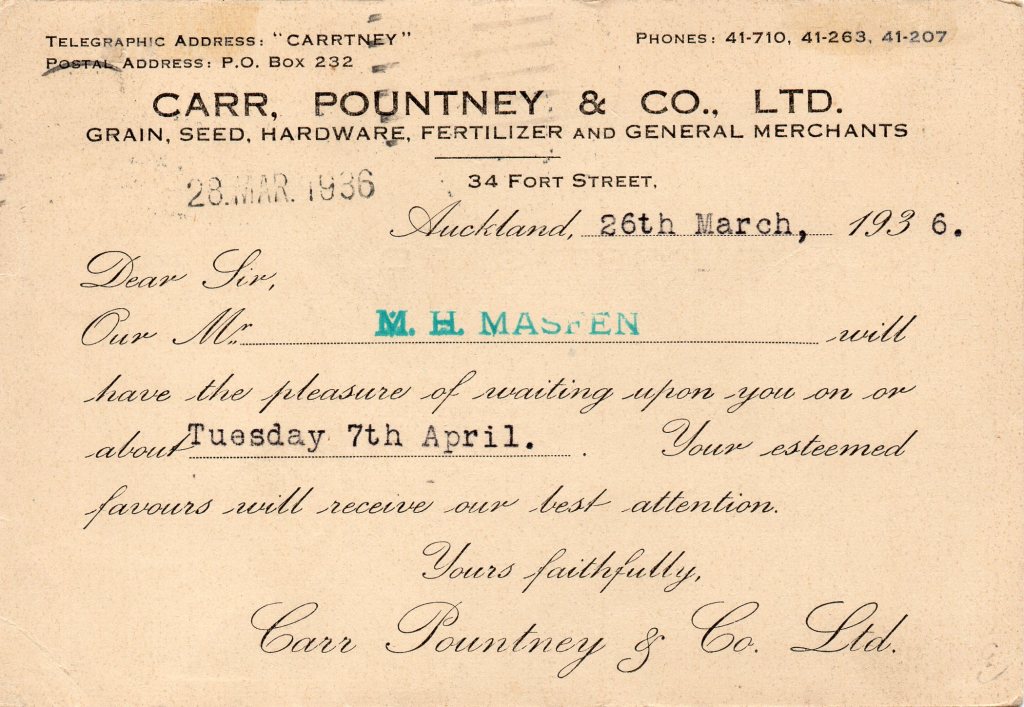 TELEGRAPHIC ADDRESS: "CARRTNEY"
PHONES: 41-710, 41-263, 41-207
POSTAL ADDRESS: P.O. BOX 232
CARR, POUNTNEY & CO., LTD.
GRAIN, SEED, HARDWARE, FERTILIZER AND GENERAL MERCHANTS
34 FORT STREET,
28.MAR.1936
Auckland, 26th March, 1936.
Dear Sir,
Our Mr. M. H. MASFEN will
have the pleasure of waiting upon you on or
about Tuesday 7th April. . Your esteemed
favours will receive our best attention.
Yours faithfully,
Carr Pountney & Co. Ltd.